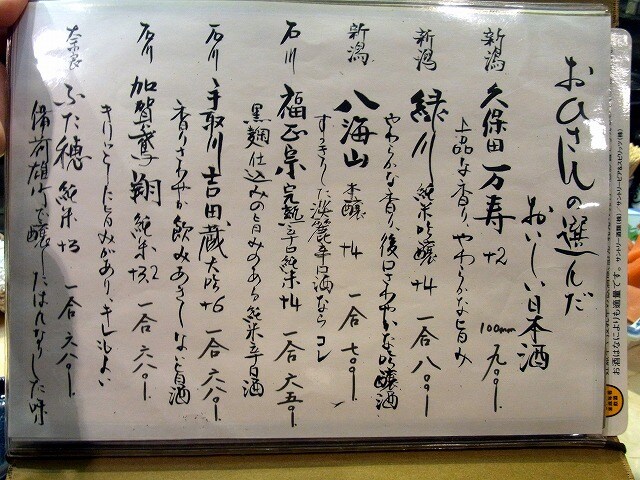 おひさしの選んだ
おいしい日本酒
新潟 久保田 万寿 +2 100mm 九〇〇
上品な香り、やわらかな旨み
新潟 緑川 純米吟醸 +4 一合 八〇〇
やわらかな香り、後口さわやかな吟醸酒
新潟 八海山 本醸 +4 一合 七〇〇
すっきりした淡麗辛口酒ならコレ
石川 福正宗 完熟辛口純米 +4 一合 六五〇
黒麹仕込みの旨みのある純米辛口酒
石川 手取川 吉田蔵 大吟 +6 一合 六八〇
香りさわやか飲みあきしない旨酒
石川 加賀鳶 翔 純米 +3.2 一合 六八〇
きりっとした旨みがあり、キレもよい
奈良 ふた穂 純米 +3 一合 六八〇
備前雄町で醸したはんなりした味
お酒はなによりも適量です。